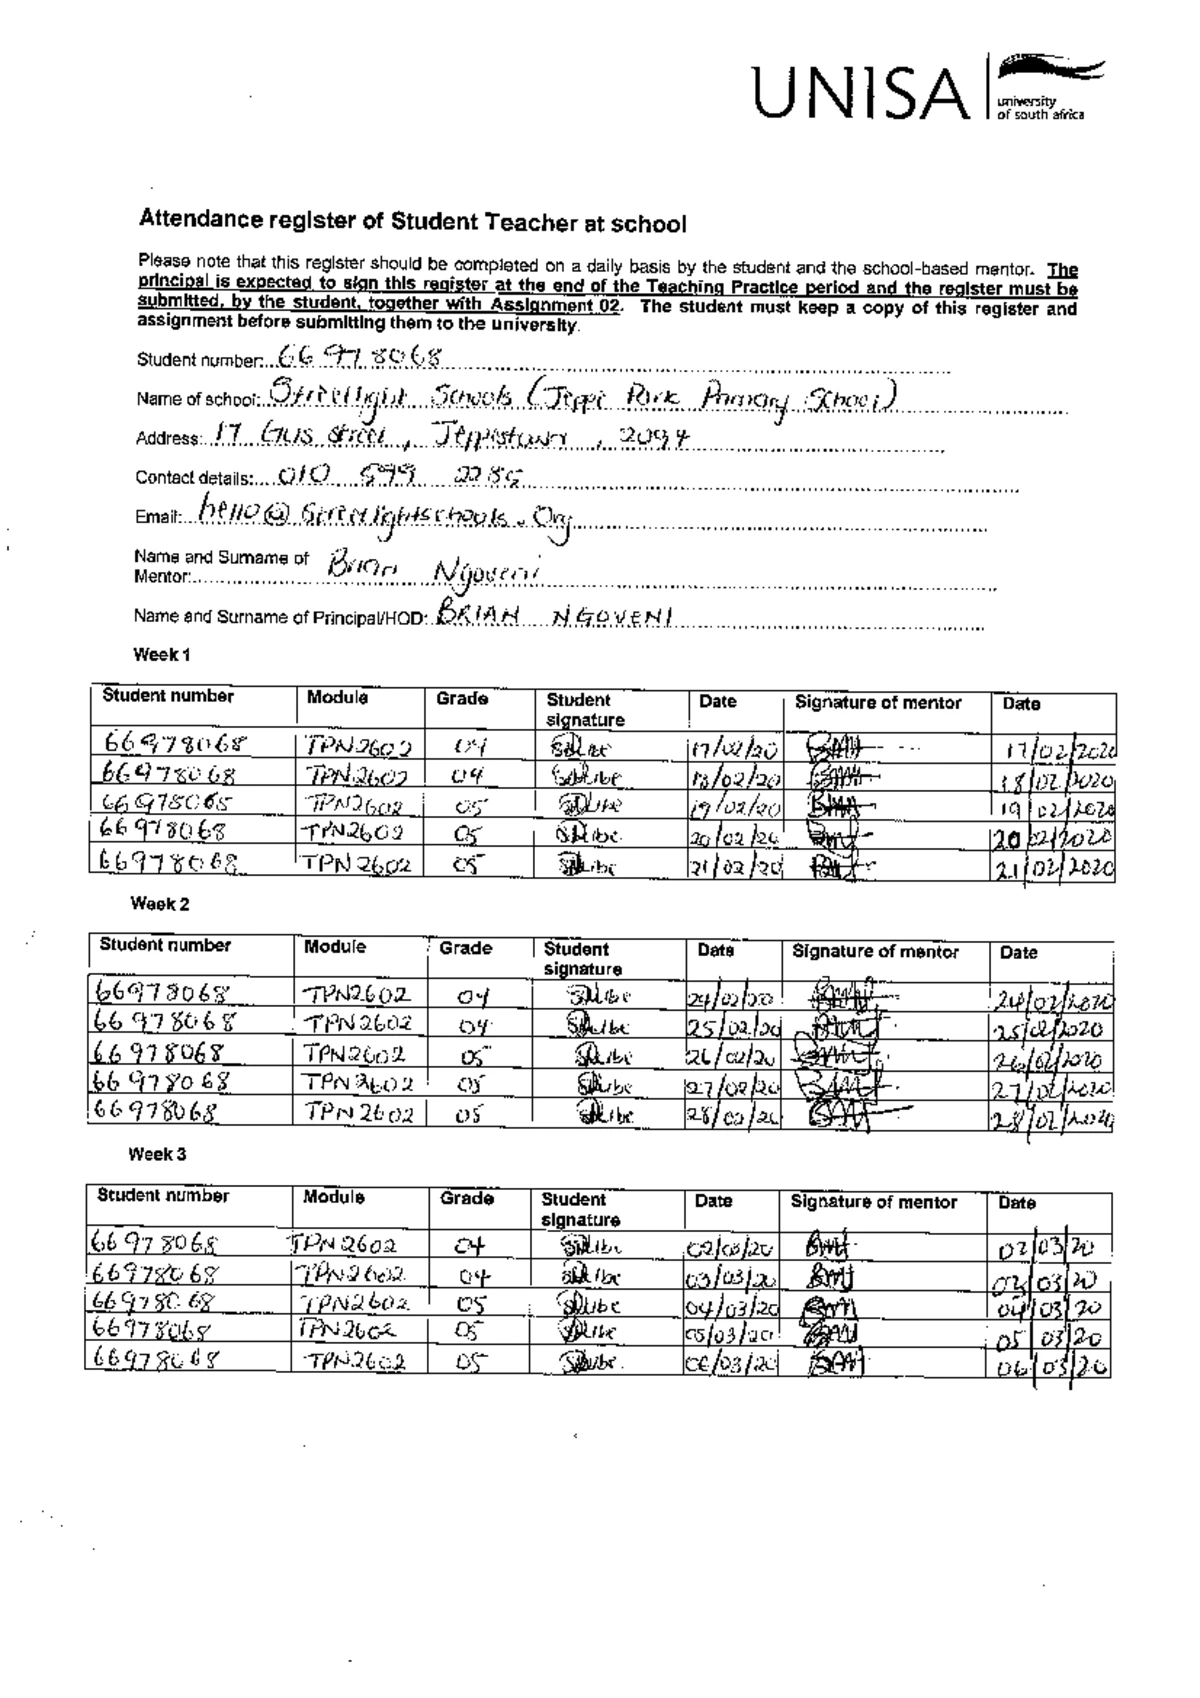 UNISA
university
of south africa
Attendance register of Student Teacher at school
Please note that this register should be completed on a daily basis by the student and the school-based mentor. The
principal is expected to sign this register at the end of the Teaching Practice period and the register must be
submitted, by the student, together with Assignment 02. The student must keep a copy of this register and
assignment before submitting them to the university.
Student number: 66978068
Name of school: Streetlight Schools (Jeppe Park Primary School)
Address: 17 Gus Street, Jeppestown, 2094
Contact details: 010 599 2285
Email: hello@streetlightschools.Org
Name and Surname of Brian Ngoveni
Mentor:
Name and Surname of Principal/HOD: BRIAN NGOVENI
Week 1
Student number Module Grade Student signature Date Signature of mentor Date
66978068 TPN2602 04 17/02/20 17/02/2020
66978068 TPN2602 04 18/02/20 18/02/2020
66978068 TPN2602 05 19/02/20 19/02/2020
66978068 TPN2602 05 20/02/20 20/02/2020
66978068 TPN2602 05 21/02/20 21/02/2020
Week 2
Student number Module Grade Student signature Date Signature of mentor Date
66978068 TPN2602 04 24/02/20 24/02/2020
66978068 TPN2602 04 25/02/20 25/02/2020
66978068 TPN2602 05 26/02/20 26/02/2020
66978068 TPN2602 05 27/02/20 27/02/2020
66978068 TPN2602 05 28/02/20 28/02/2020
Week 3
Student number Module Grade Student signature Date Signature of mentor Date
66978068 TPN2602 04 02/03/20 02/03/20
66978068 TPN2602 04 03/03/20 03/03/20
66978068 TPN2602 05 04/03/20 04/03/20
66978068 TPN2602 05 05/03/20 05/03/20
66978068 TPN2602 05 06/03/20 06/03/20